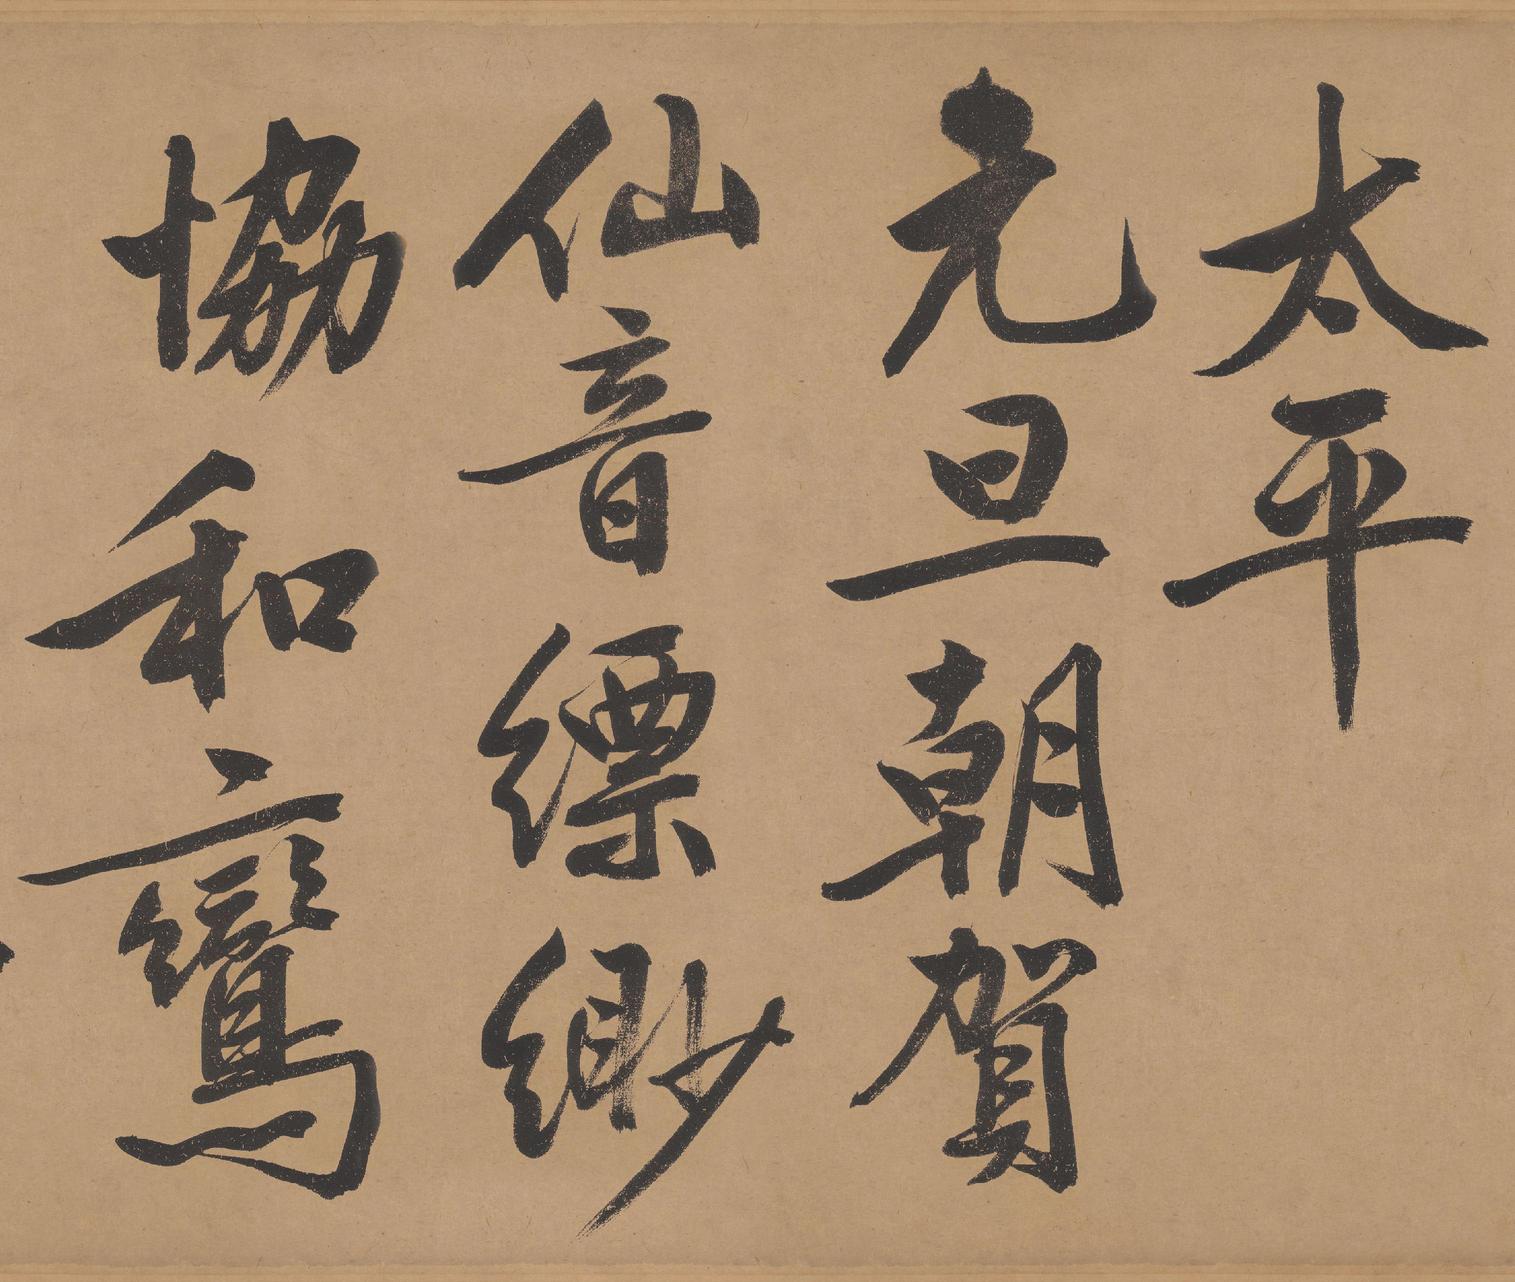 太平
元旦朝賀
仙音縹緲
協和鸞